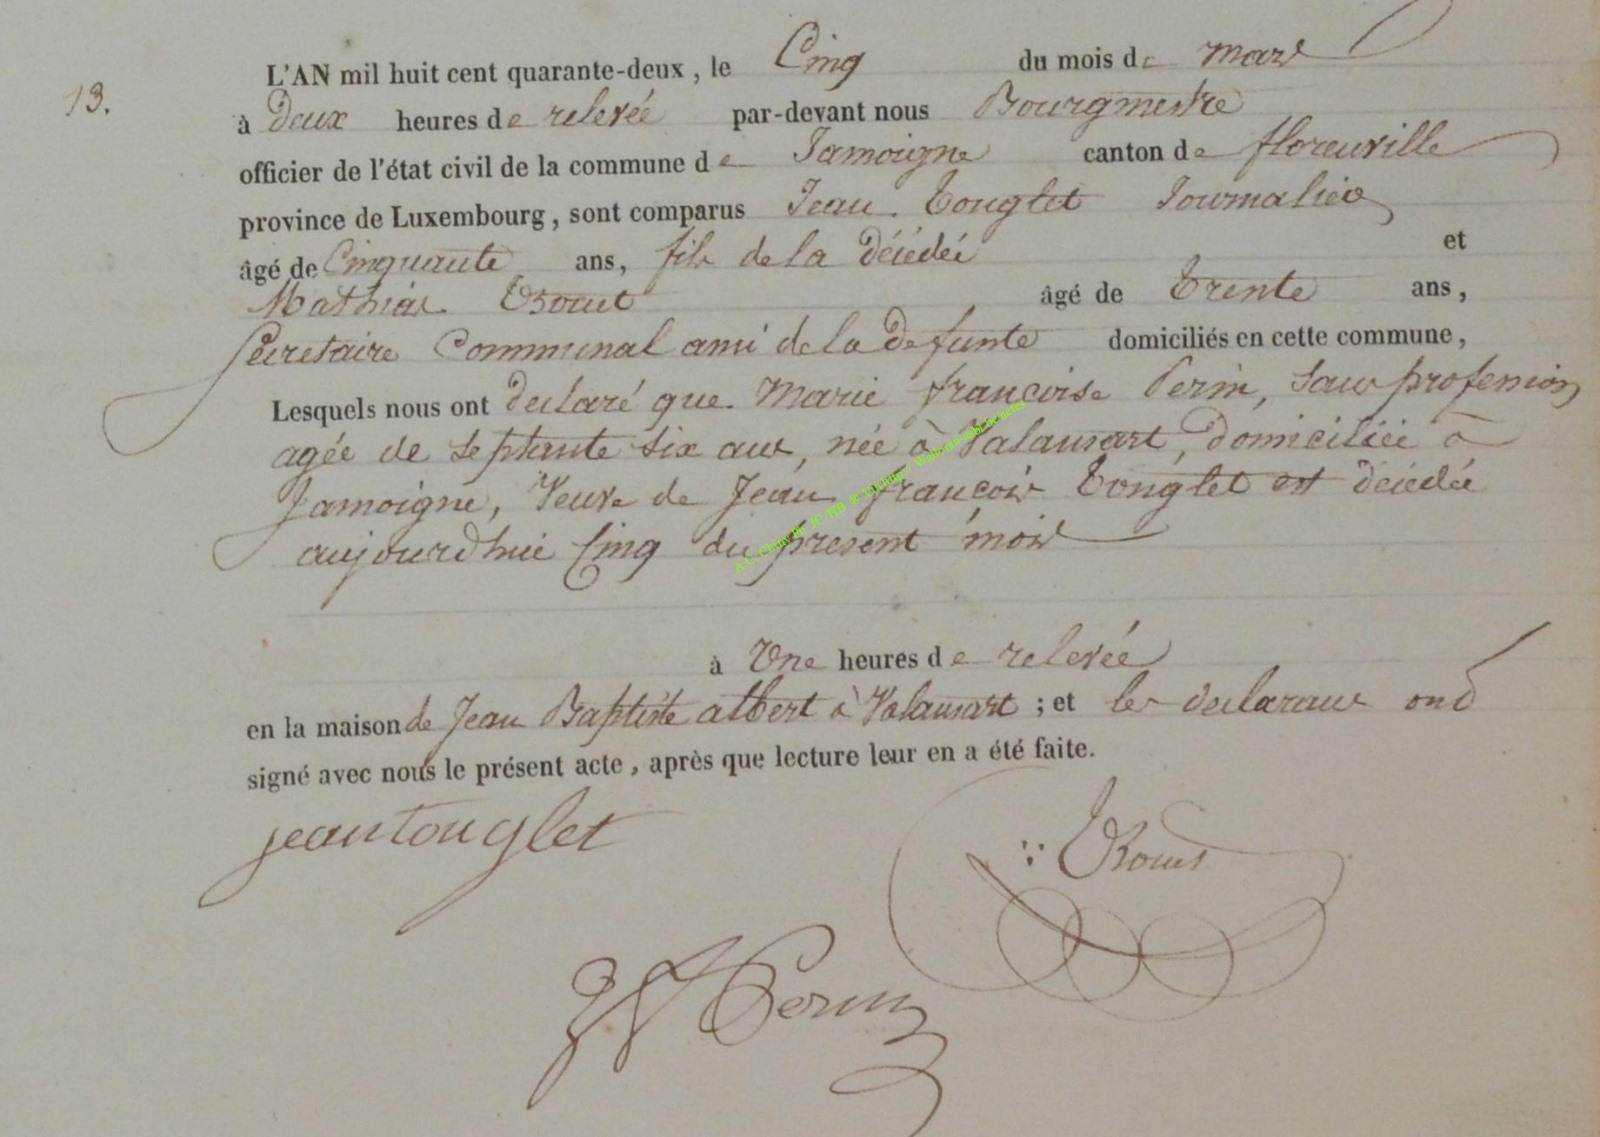 13.
L'AN mil huit cent quarante-deux, le Cinq du mois de mars
à Deux heures de relevée par-devant nous Bourgmestre
officier de l'état civil de la commune de Jamoigne canton de florenville
province de Luxembourg, sont comparus Jean Tonglet Journalier
âgé de Cinquante ans, fils de la Décédée et
Mathias âgé de Trente ans,
Secretaire Communal ami de la Defunte domiciliés en cette commune,
Lesquels nous ont Declaré que Marie françoise Perin, Sans profession
agée de septante six ans, née à Valansart, Domiciliée à
Jamoigne, Veuve de Jean françois Tonglet est Décédée
aujourdhui Cinq du présent mois
à Une heures de relevée
en la maison de Jean Baptiste albert à Valansart ; et les declarans ont
signé avec nous le présent acte, après que lecture leur en a été faite.
jean tonglet
Perin